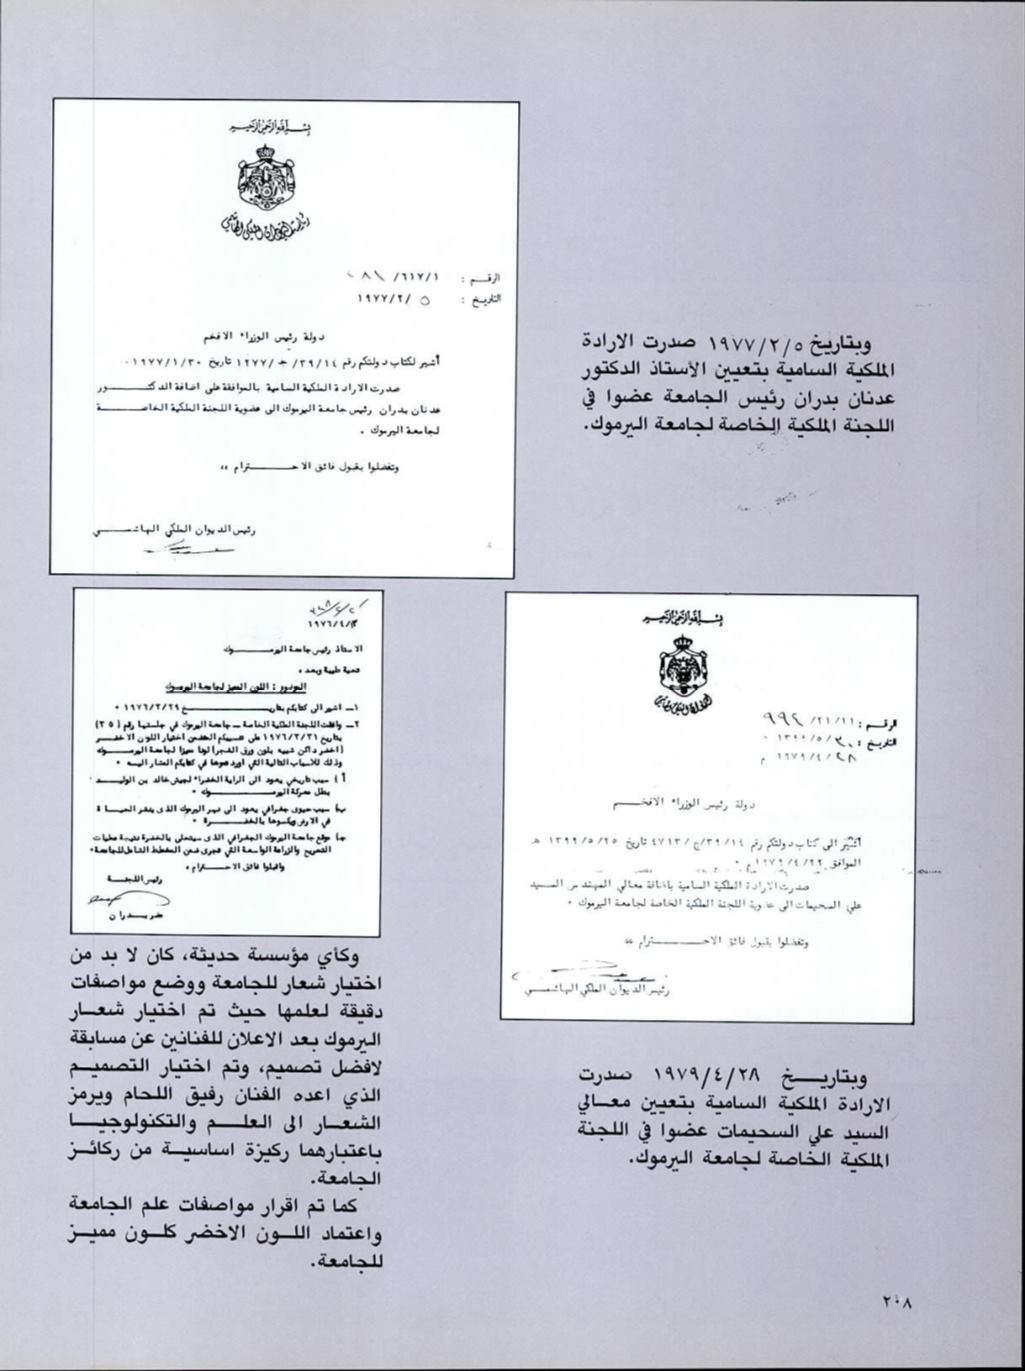 بسم الله الرحمن الرحيم
رئاسة الديوان الملكي الهاشمي
الرقم : ٦١٧/١/
التاريخ : ١٩٧٧/٢/٥
دولة رئيس الوزراء الافخم
أشير لكتاب دولتكم رقم ٣٩/١٤/ج/١٢٧٧ تاريخ ١٩٧٧/١/٣٠ ٠
صدرت الارادة الملكية السامية بالموافقة على اضافة الدكتور
عدنان بدران رئيس جامعة اليرموك الى عضوية اللجنة الملكية الخاصة
لجامعة اليرموك .
وتفضلوا بقبول فائق الاحترام ،،
رئيس الديوان الملكي الهاشمي
وبتاريخ ١٩٧٧/٢/٥ صدرت الارادة
الملكية السامية بتعيين الأستاذ الدكتور
عدنان بدران رئيس الجامعة عضوا في
اللجنة الملكية الخاصة لجامعة اليرموك.
١٩٧٦/٤/
الاستاذ رئيس جامعة اليرموك
تحية طيبة وبعد ،
الموضوع : اللون المميز لجامعة اليرموك
١ـ اشير الى كتابكم بتاريخ ١٩٧٦/٣/٢٩ ٠
٢ـ وافقت اللجنة الملكية الخاصة ـ جامعة اليرموك في جلستها رقم (٣٥)
بتاريخ ١٩٧٦/٣/٣١ على تنسيبكم المتضمن اختيار اللون الاخضر
(اخضر داكن شبيه بلون ورق الشجر) لونا مميزا لجامعة اليرموك
وذلك للاسباب التالية التي اوردتموها في كتابكم المشار اليه ٠
أ) سبب تاريخي يعود الى الراية الخضراء لجيش خالد بن الوليد
بطل معركة اليرموك ٠
ب) سبب حيوي جغرافي يعود الى نهر اليرموك الذى ينشر الحياة
في الارض ويكسوها بالخضرة ٠
ج) موقع جامعة اليرموك الجغرافي الذى سيتحلى بالخضرة نتيجة عمليات
التحريج والزراعة الواسعة التي تجرى ضمن المخطط الشامل للجامعة٠
واقبلوا فائق الاحترام ،
رئيس اللجنة
مضر بدران
بسم الله الرحمن الرحيم
الرقم : ٢١/١١/ ٩٩٢
التاريخ : ١٣٩٩/٥/٣٠ هـ
١٩٧٩/٤/٢٨ م
دولة رئيس الوزراء الافخم
أشير الى كتاب دولتكم رقم ٣٩/١٤/ج/٤٧١٣ تاريخ ١٣٩٩/٥/٢٥ هـ
الموافق ١٩٧٩/٤/٢٢م ٠
صدرت الارادة الملكية السامية باضافة معالي المهندس السيد
علي السحيمات الى عضوية اللجنة الملكية الخاصة لجامعة اليرموك ٠
وتفضلوا بقبول فائق الاحترام ،،
رئيس الديوان الملكي الهاشمي
وبتاريخ ١٩٧٩/٤/٢٨ صدرت
الارادة الملكية السامية بتعيين معالي
السيد علي السحيمات عضوا في اللجنة
الملكية الخاصة لجامعة اليرموك.
وكأي مؤسسة حديثة، كان لا بد من
اختيار شعار للجامعة ووضع مواصفات
دقيقة لعلمها حيث تم اختيار شعار
اليرموك بعد الاعلان للفنانين عن مسابقة
لافضل تصميم، وتم اختيار التصميم
الذي اعده الفنان رفيق اللحام ويرمز
الشعار الى العلم والتكنولوجيا
باعتبارهما ركيزة اساسية من ركائز
الجامعة.
كما تم اقرار مواصفات علم الجامعة
واعتماد اللون الاخضر كلون مميز
للجامعة.
٢٠٨